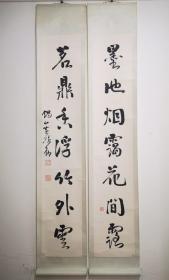 墨池烟霭花间露
茗鼎香浮竹外云